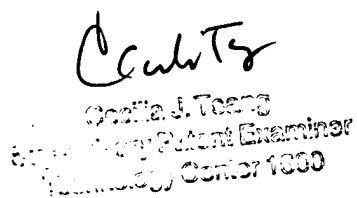 Cecilia J. Tsang
Supervisory Patent Examiner
Technology Center 1600